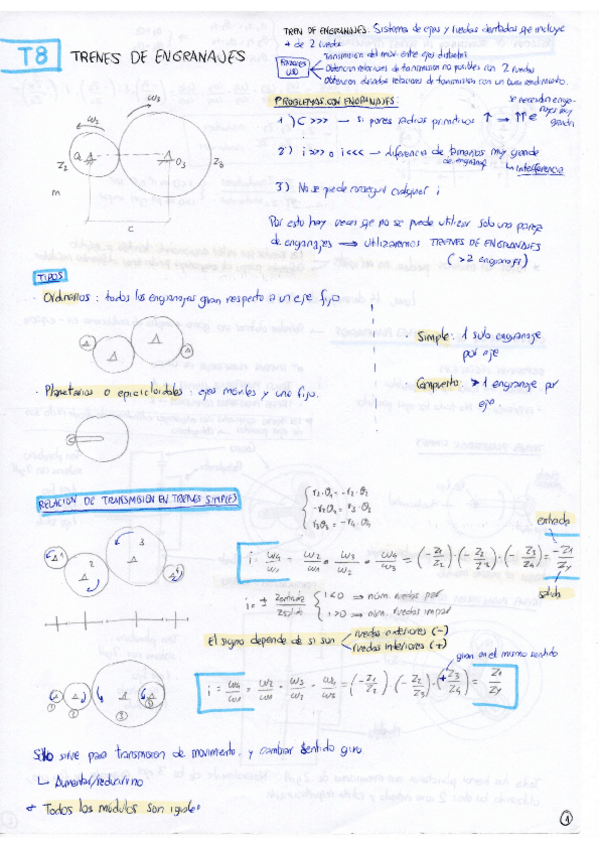 T8 TRENES DE ENGRANAJES
TREN DE ENGRANAJES: Sistema de ejes y ruedas dentadas que incluye
+ de 2 ruedas
Transmisión del mov. entre ejes distantes
Obtención relaciones de transmisión no posibles con 2 ruedas
Obtención elevadas relaciones de transmisión con un buen rendimiento.
PROBLEMAS CON ENGRANAJES:
1) C >>> → si pones radios primitivos ↑ → ↑↑ e
se necesitan engranajes muy grandes
2) i >>> o i <<< → diferencia de tamaños muy grande
de engranaj
↳ interferencia
3) No se puede conseguir cualquier i
Por esto hay veces que no se puede utilizar solo una pareja
de engranajes → Utilizaremos TRENES DE ENGRANAJES
( >2 engranajes)
ω2
ω3
Z2
O2
O3
Z3
m
c
TIPOS
· Ordinarios : todos los engranajes giran respecto a un eje fijo
· Simple: 1 solo engranaje
por eje
· Compuesto: > 1 engranaje por
eje.
· Planetarios o epicicloidales : ejes móviles y uno fijo.
RELACIÓN DE TRANSMISIÓN EN TRENES SIMPLES
r1·θ1 = -r2·θ2
-r2θ2 = r3·θ3
r3θ3 = -r4·θ4
entrada
i = ω4/ω1 = ω2/ω1 · ω3/ω2 · ω4/ω3 = (-Z1/Z2)·(-Z2/Z3)·(-Z3/Z4) = -Z1/Z4
salida
i = ± Zentrada/Zsalida { i<0 → núm. ruedas par
i>0 → núm. ruedas impar
El signo depende de si son ruedas exteriores (-)
ruedas interiores (+)
giran en el mismo sentido
i = ω4/ω1 = ω2/ω1 · ω3/ω2 · ω4/ω3 = (-Z1/Z2)·(-Z2/Z3)·(+Z3/Z4) = Z1/Z4
Sólo sirve para transmisión de movimiento, y cambiar sentido giro
↳ Aumentar/reducirlo
* Todos los módulos son iguales
1